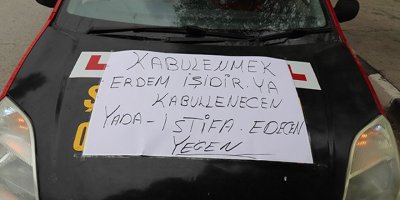 KABULENMEK
ERDEM İŞİDİR. YA
KABULLENECEN
YADA-İSTİFA. EDECEN
YEĞEN